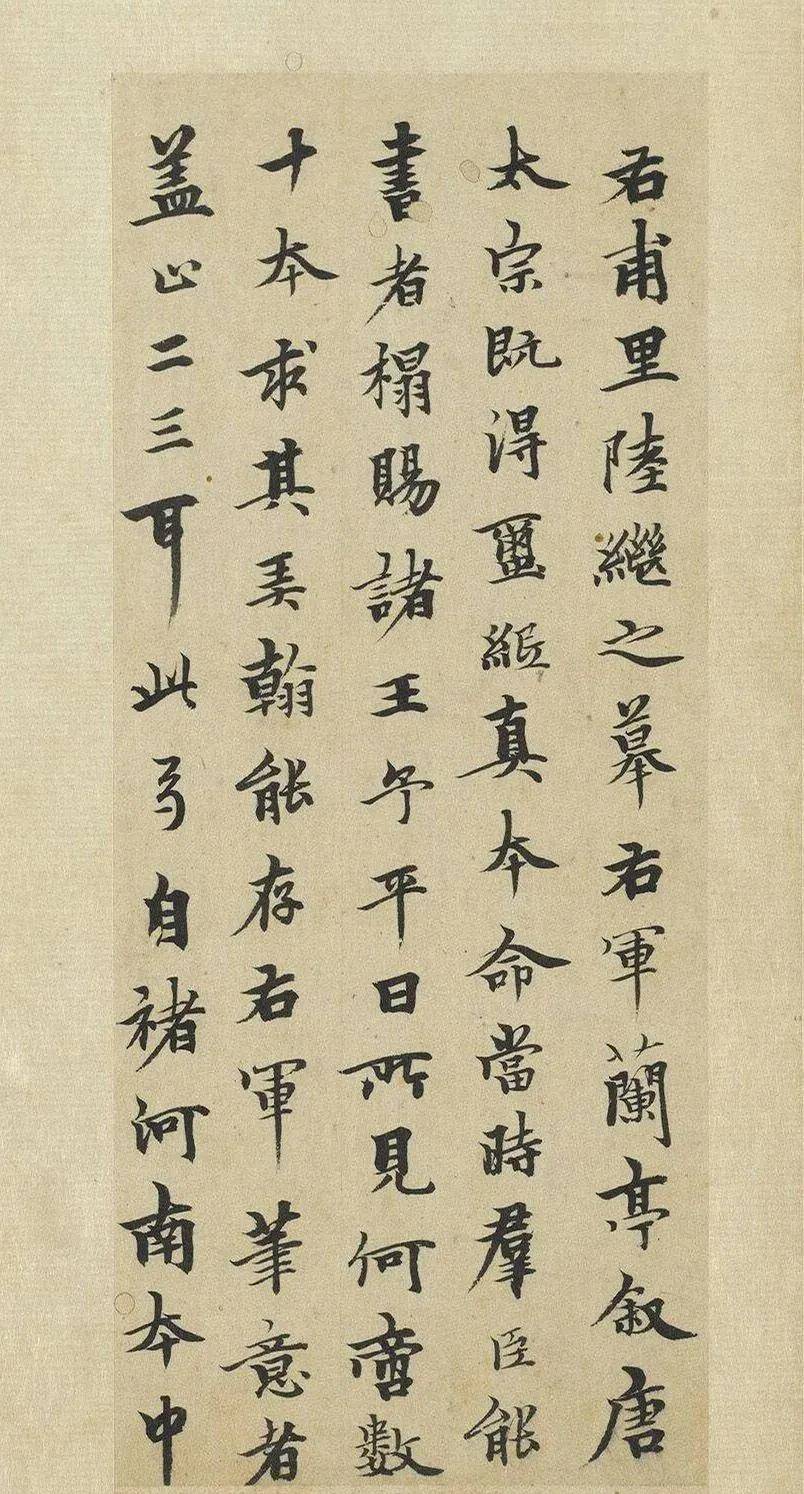 右甫里陸繼之摹右軍蘭亭叙唐
太宗既得璽紙真本命當時羣臣能
書者搨賜諸王予平日所見何啻数
十本求其美翰能存右軍筆意者
盖止二三耳此乃自褚河南本中